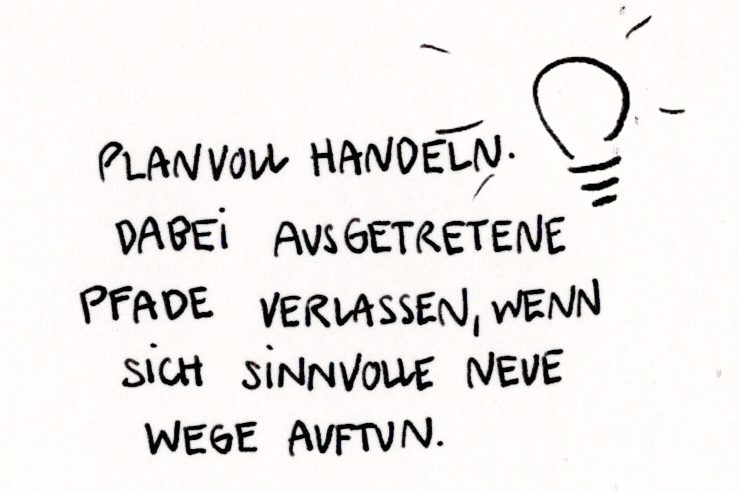 PLANVOLL HANDELN.
DABEI AUSGETRETENE
PFADE VERLASSEN, WENN
SICH SINNVOLLE NEUE
WEGE AUFTUN.